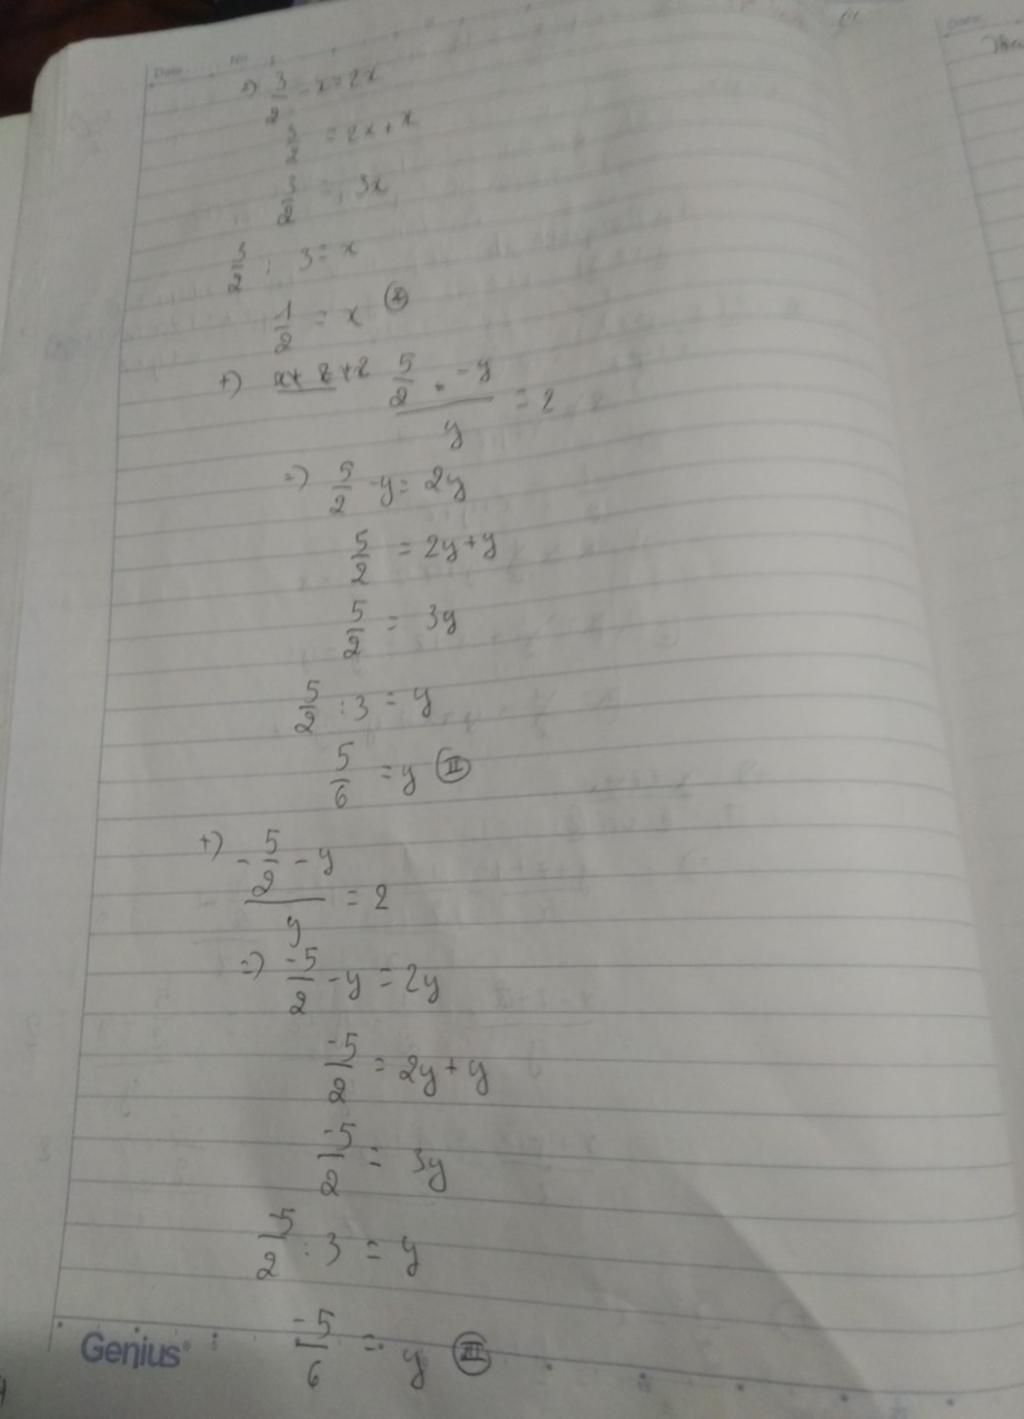 =) 3/2 - x = 2x
3/2 = 2x + x
3/2 = 3x
3/2 : 3 = x
1/2 = x (I)
+) (5/2 - y)/y = 2
=) 5/2 - y = 2y
5/2 = 2y + y
5/2 = 3y
5/2 : 3 = y
5/6 = y (II)
+) (-5/2 - y)/y = 2
=) -5/2 - y = 2y
-5/2 = 2y + y
-5/2 = 3y
-5/2 : 3 = y
-5/6 = y (III)
Genius